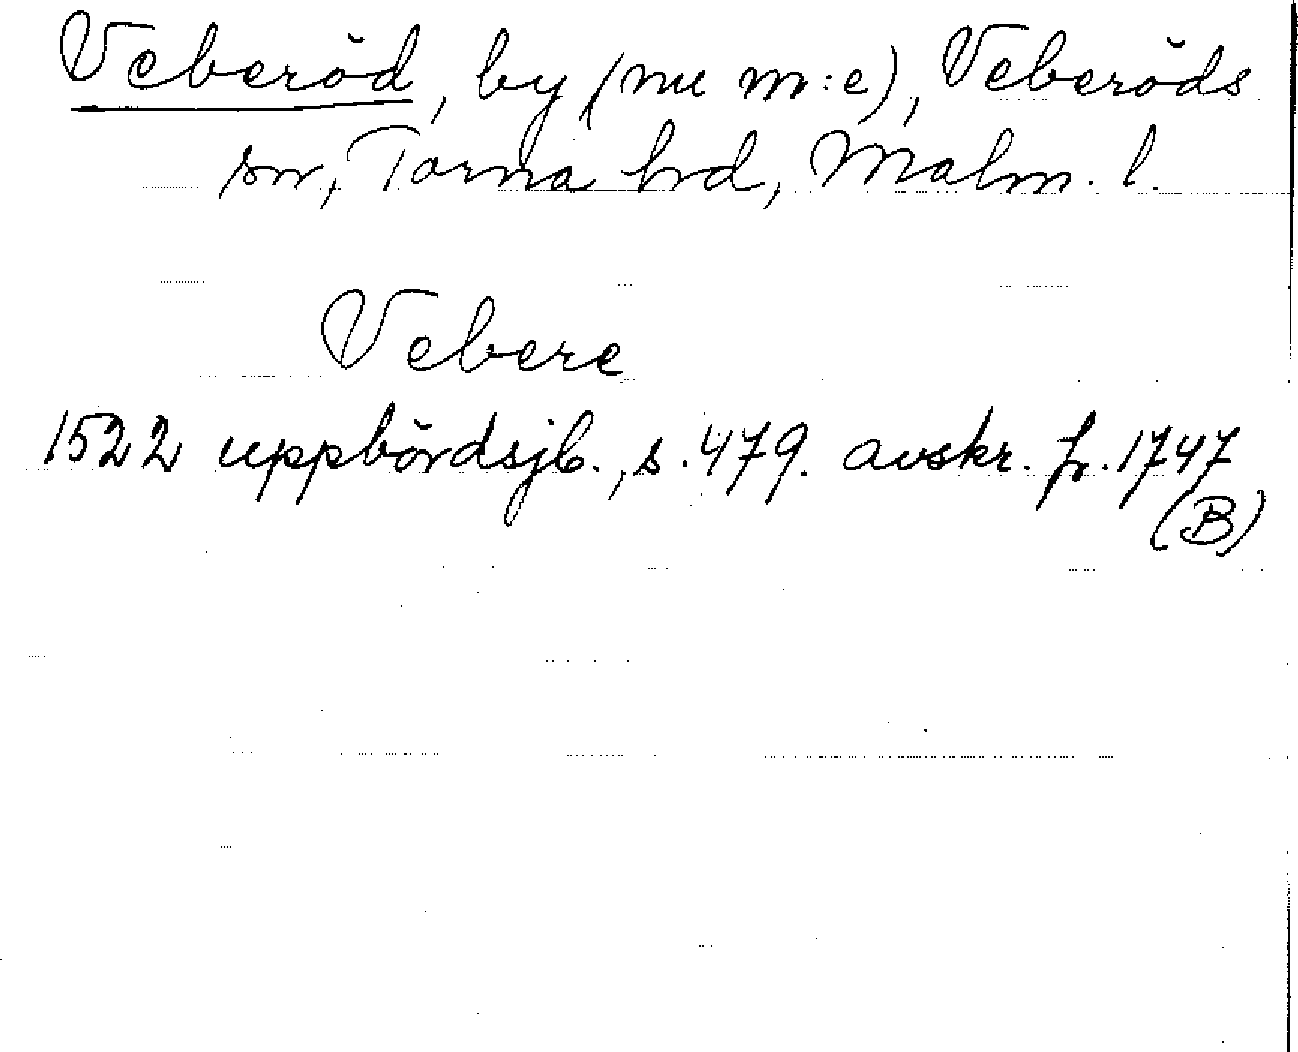 Veberöd, by (nu m:e), Veberöds
sn, Torna hd, Malm. l.
Vebere
1522 uppbördsjb., s. 479. avskr. fr. 1747
(B)